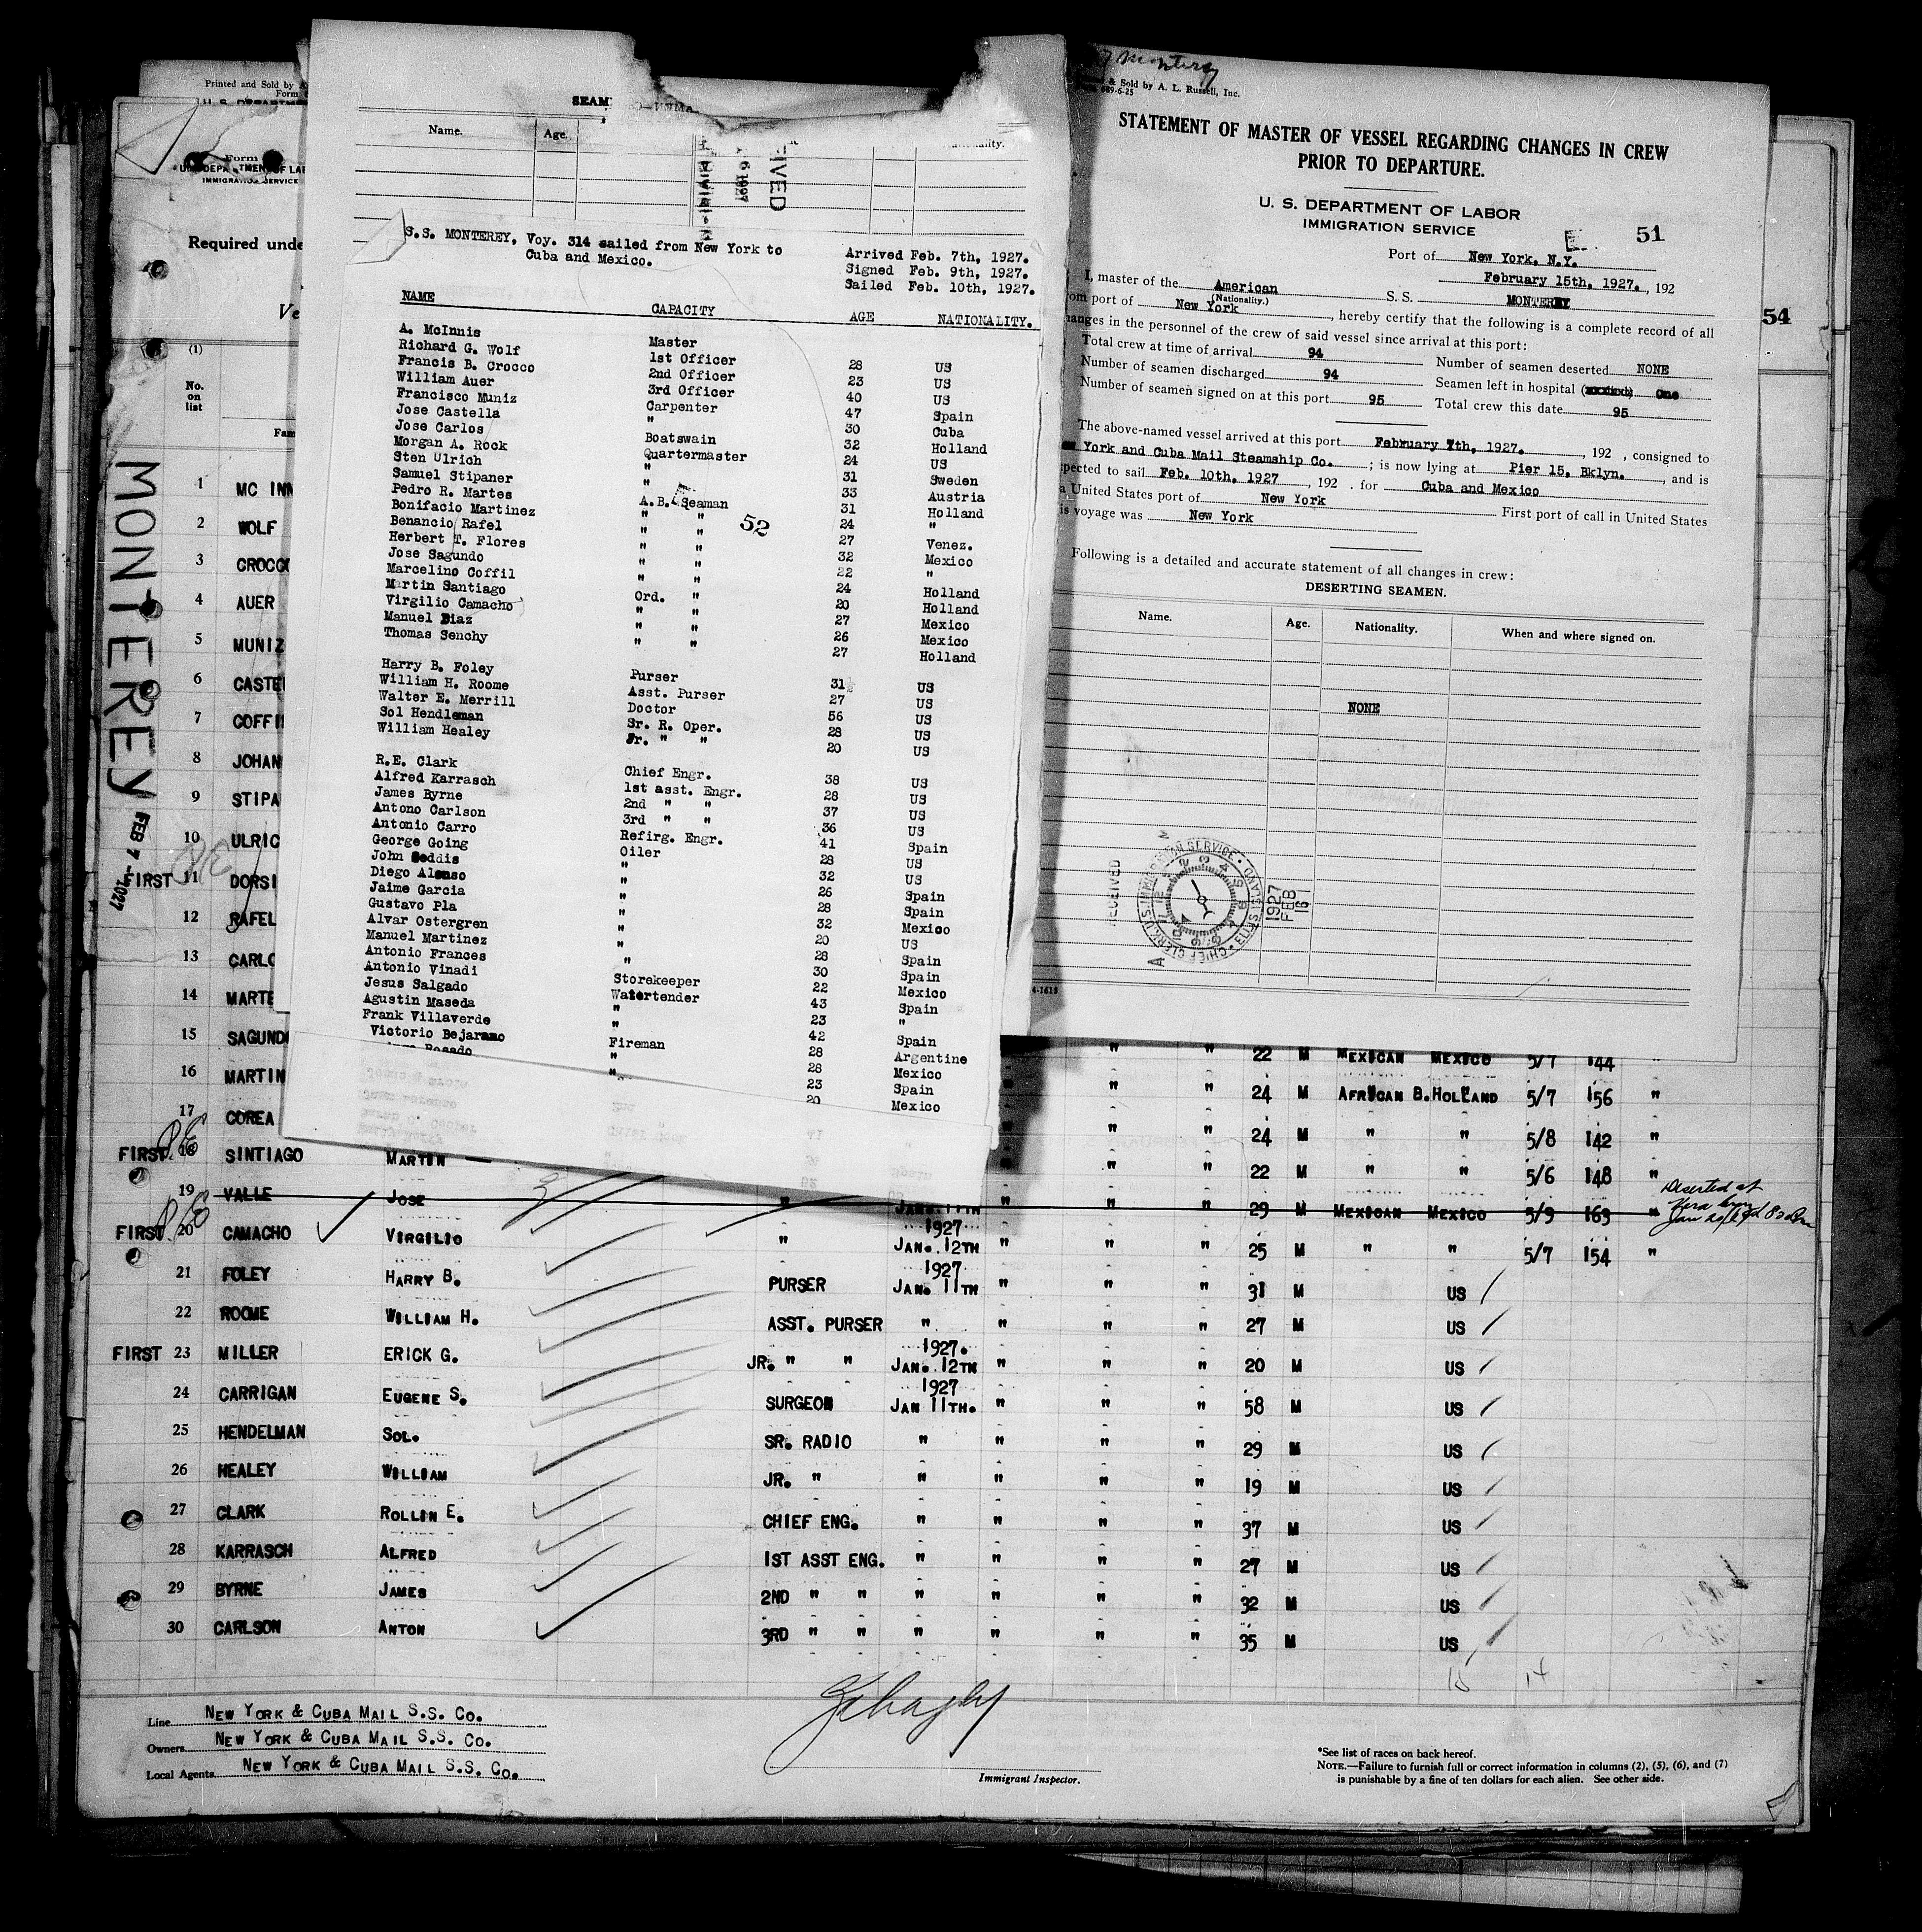 Printed and Sold by A
Form
U. S. DEPARTMEN
IMMIGRATION SERVICE
Required unde
Ve
(1)
No.
on
list
Fam
MONTEREY FEB 7-1927
SEAM
Name. Age. nality.
6 1927
S.S. MONTEREY, Voy. 314 sailed from New York to
Cuba and Mexico.
Arrived Feb. 7th, 1927.
Signed Feb. 9th, 1927.
Sailed Feb. 10th, 1927.
NAME CAPACITY AGE NATIONALITY.
A. McInnis Master
Richard G. Wolf 1st Officer 28 US
Francis B. Crocco 2nd Officer 23 US
William Auer 3rd Officer 40 US
Francisco Muniz Carpenter 47 Spain
Jose Castella " 30 Cuba
Jose Carlos Boatswain 32 Holland
Morgan A. Rock Quartermaster 24 US
Sten Ulrich " 31 Sweden
Samuel Stipaner " 33 Austria
Pedro R. Martes A.B. Seaman 31 Holland
Bonifacio Martinez " " 24 "
Benancio Rafel " " 27 Venez.
Herbert T. Flores " " 32 Mexico
Jose Sagundo " " 22 "
Marcelino Coffil " " 24 Holland
Martin Santiago Ord. " 20 Holland
Virgilio Camacho " " 27 Mexico
Manuel Diaz " " 26 Mexico
Thomas Senchy " " 27 Holland
52
Harry B. Foley Purser 31 US
William H. Roome Asst. Purser 27 US
Walter E. Merrill Doctor 56 US
Sol Hendleman Sr. R. Oper. 28 US
William Healey Jr. " " 20 US
R.E. Clark Chief Engr. 38 US
Alfred Karrasch 1st asst. Engr. 28 US
James Byrne 2nd " " 37 US
Antono Carlson 3rd " " 36 US
Antonio Carro Refirg. Engr. 41 Spain
George Going Oiler 28 US
John Seddis " 32 US
Diego Alonso " 26 Spain
Jaime Garcia " 28 Spain
Gustavo Pla " 32 Mexico
Alvar Ostergren " 20 US
Manuel Martinez " 28 Spain
Antonio Frances " 30 Spain
Antonio Vinadi Storekeeper 22 Mexico
Jesus Salgado Watertender 43 Spain
Agustin Maseda " 23 "
Frank Villaverde " 42 Spain
Victorio Bejarano Fireman 28 Argentine
Rosado " 28 Mexico
" 23 Spain
20 Mexico
Monterey
& Sold by A. L. Russell, Inc.
689-6-25
STATEMENT OF MASTER OF VESSEL REGARDING CHANGES IN CREW
PRIOR TO DEPARTURE.
U. S. DEPARTMENT OF LABOR
IMMIGRATION SERVICE
51
Port of New York, N.Y.
February 15th, 1927. , 192
I, master of the American S. S. MONTEREY
(Nationality.)
om port of New York , hereby certify that the following is a complete record of all
anges in the personnel of the crew of said vessel since arrival at this port:
Total crew at time of arrival 94 Number of seamen deserted NONE
Number of seamen discharged 94 Seamen left in hospital One
Number of seamen signed on at this port 95 Total crew this date 95
The above-named vessel arrived at this port February 7th, 1927. , 192 , consigned to
York and Cuba Mail Steamship Co. ; is now lying at Pier 15, Bklyn. , and is
pected to sail Feb. 10th, 1927 , 192 . for Cuba and Mexico
a United States port of New York First port of call in United States
is voyage was New York
Following is a detailed and accurate statement of all changes in crew:
DESERTING SEAMEN.
Name. Age. Nationality. When and where signed on.
NONE
RECEIVED
CHIEF CLERK, U.S. IMMIGRATION SERVICE • ELLIS ISLAND
1927 FEB 16
4-1613
54
1 MC INN
2 WOLF
3 CROCCO
4 AUER
5 MUNIZ
6 CASTE
7 COFFI
8 JOHAN
9 STIPA
10 ULRIC
FIRST 11 DORSI
12 RAFEL
13 CARLO
14 MARTE
15 SAGUNDO " " 22 M MEXICAN MEXICO 5/7 144 "
16 MARTIN " " 24 M AFRICAN B. HOLLAND 5/7 156 "
17 COREA " " 24 M " " 5/8 142 "
FIRST 18 SINTIAGO MARTIN " " 22 M " " 5/6 148 "
19 VALLE JOSE " JAN. 11TH " " 29 M MEXICAN MEXICO 5/9 163 "
Deserted at
Vera Cruz
FIRST 20 CAMACHO VIRGILIO " 1927 JAN. 12TH " " 25 M " " 5/7 154 "
21 FOLEY HARRY B. PURSER 1927 JAN. 11TH " " " 31 M US
22 ROOME WILLIAM H. ASST. PURSER " " " " 27 M US
FIRST 23 MILLER ERICK G. JR. " " 1927. JAN. 12TH " " " 20 M US
24 CARRIGAN EUGENE S. SURGEON 1927 JAN 11TH. " " " 58 M US
25 HENDELMAN SOL. SR. RADIO " " " " 29 M US
26 HEALEY WILLIAM JR. " " " " " 19 M US
27 CLARK ROLLIN E. CHIEF ENG. " " " " 37 M US
28 KARRASCH ALFRED 1ST ASST ENG. " " " " 27 M US
29 BYRNE JAMES 2ND " " " " " " 32 M US
30 CARLSON ANTON 3RD " " " " " " 35 M US
Line NEW YORK & CUBA MAIL S.S. CO.
Owners NEW YORK & CUBA MAIL S.S. CO.
Local Agents NEW YORK & CUBA MAIL S.S. CO.
Immigrant Inspector.
*See list of races on back hereof.
NOTE.—Failure to furnish full or correct information in columns (2), (5), (6), and (7)
is punishable by a fine of ten dollars for each alien. See other side.